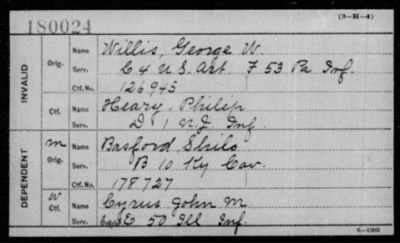 180024
(3-H-4)
INVALID
Orig.
Name Willis, George W.
Serv. C 4 U.S. Art. F 53 Pa Inf.
Ctf. No. 126945
Ctf.
Name Heary, Philip
Serv. D 1 N.J. Inf.
DEPENDENT
m
Orig.
Name Basford Shilo
Serv. B 10 Ky Cav.
Ctf. No. 178727
W
Ctf.
Name Cyrus John M
Serv. E 50 Ill Inf.